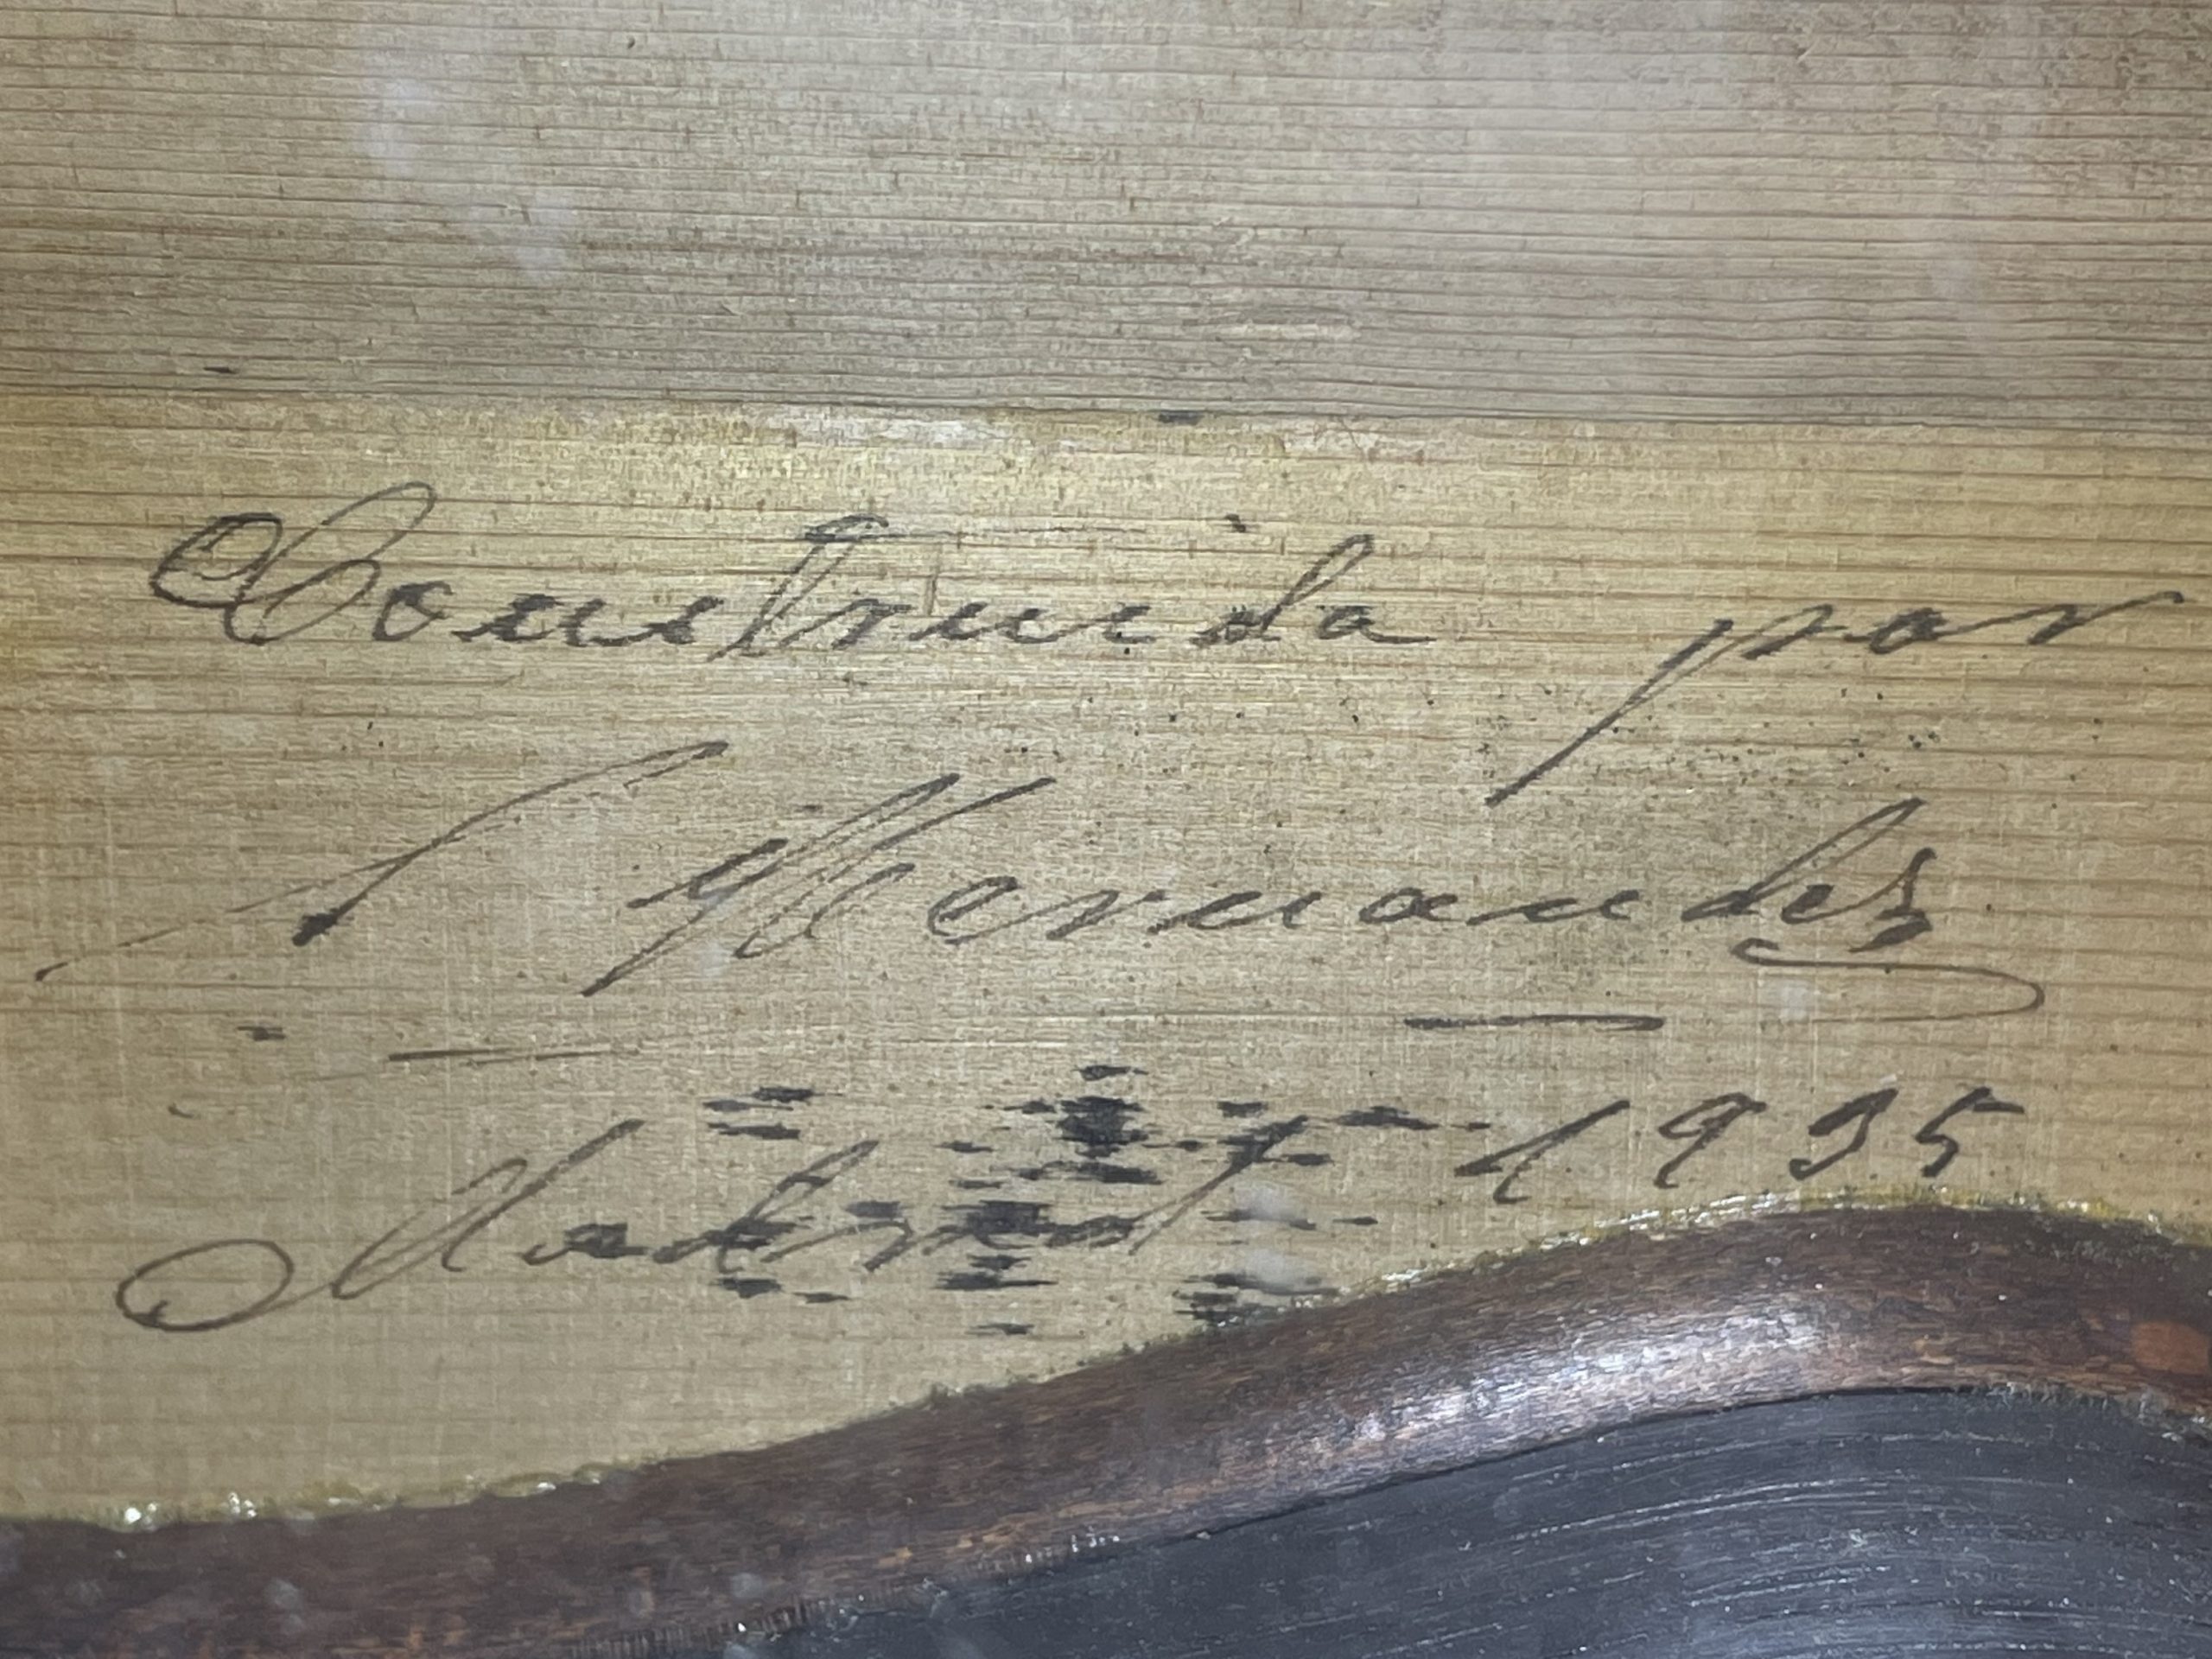 Construida por
T Hernandez
Madrid 1935